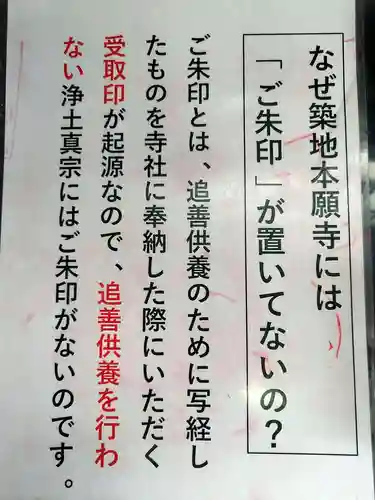 なぜ築地本願寺には
「ご朱印」が置いてないの？
ご朱印とは、追善供養のために写経し
たものを寺社に奉納した際にいただく
受取印が起源なので、追善供養を行わ
ない浄土真宗にはご朱印がないのです。